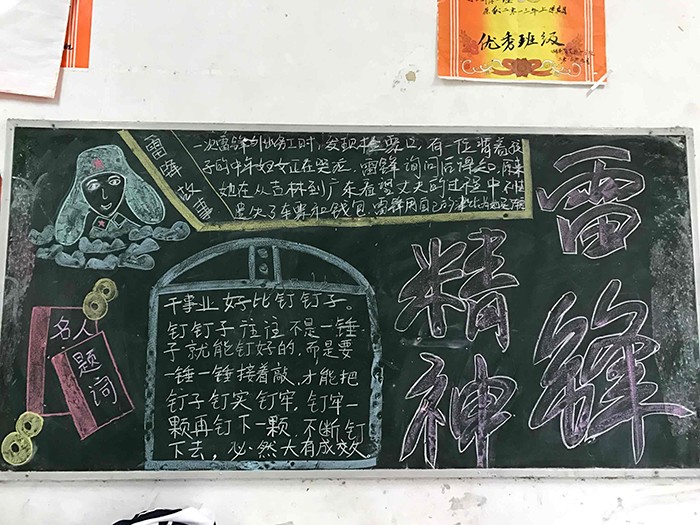 优秀班级
雷锋
精神
雷锋故事
一次雷锋外出务工时,发现检票口,有一位背着孩
子的中年妇女正在哭泣,雷锋询问后得知,原来
她在从吉林到广东看望丈夫的过程中不慎
遗失了车票和钱包,雷锋用自己的
名人
题词
干事业好比钉钉子。
钉钉子往往不是一锤
子就能钉好的,而是要
一锤一锤接着敲,才能把
钉子钉实钉牢,钉牢一
颗再钉下一颗,不断钉
下去,必然大有成效